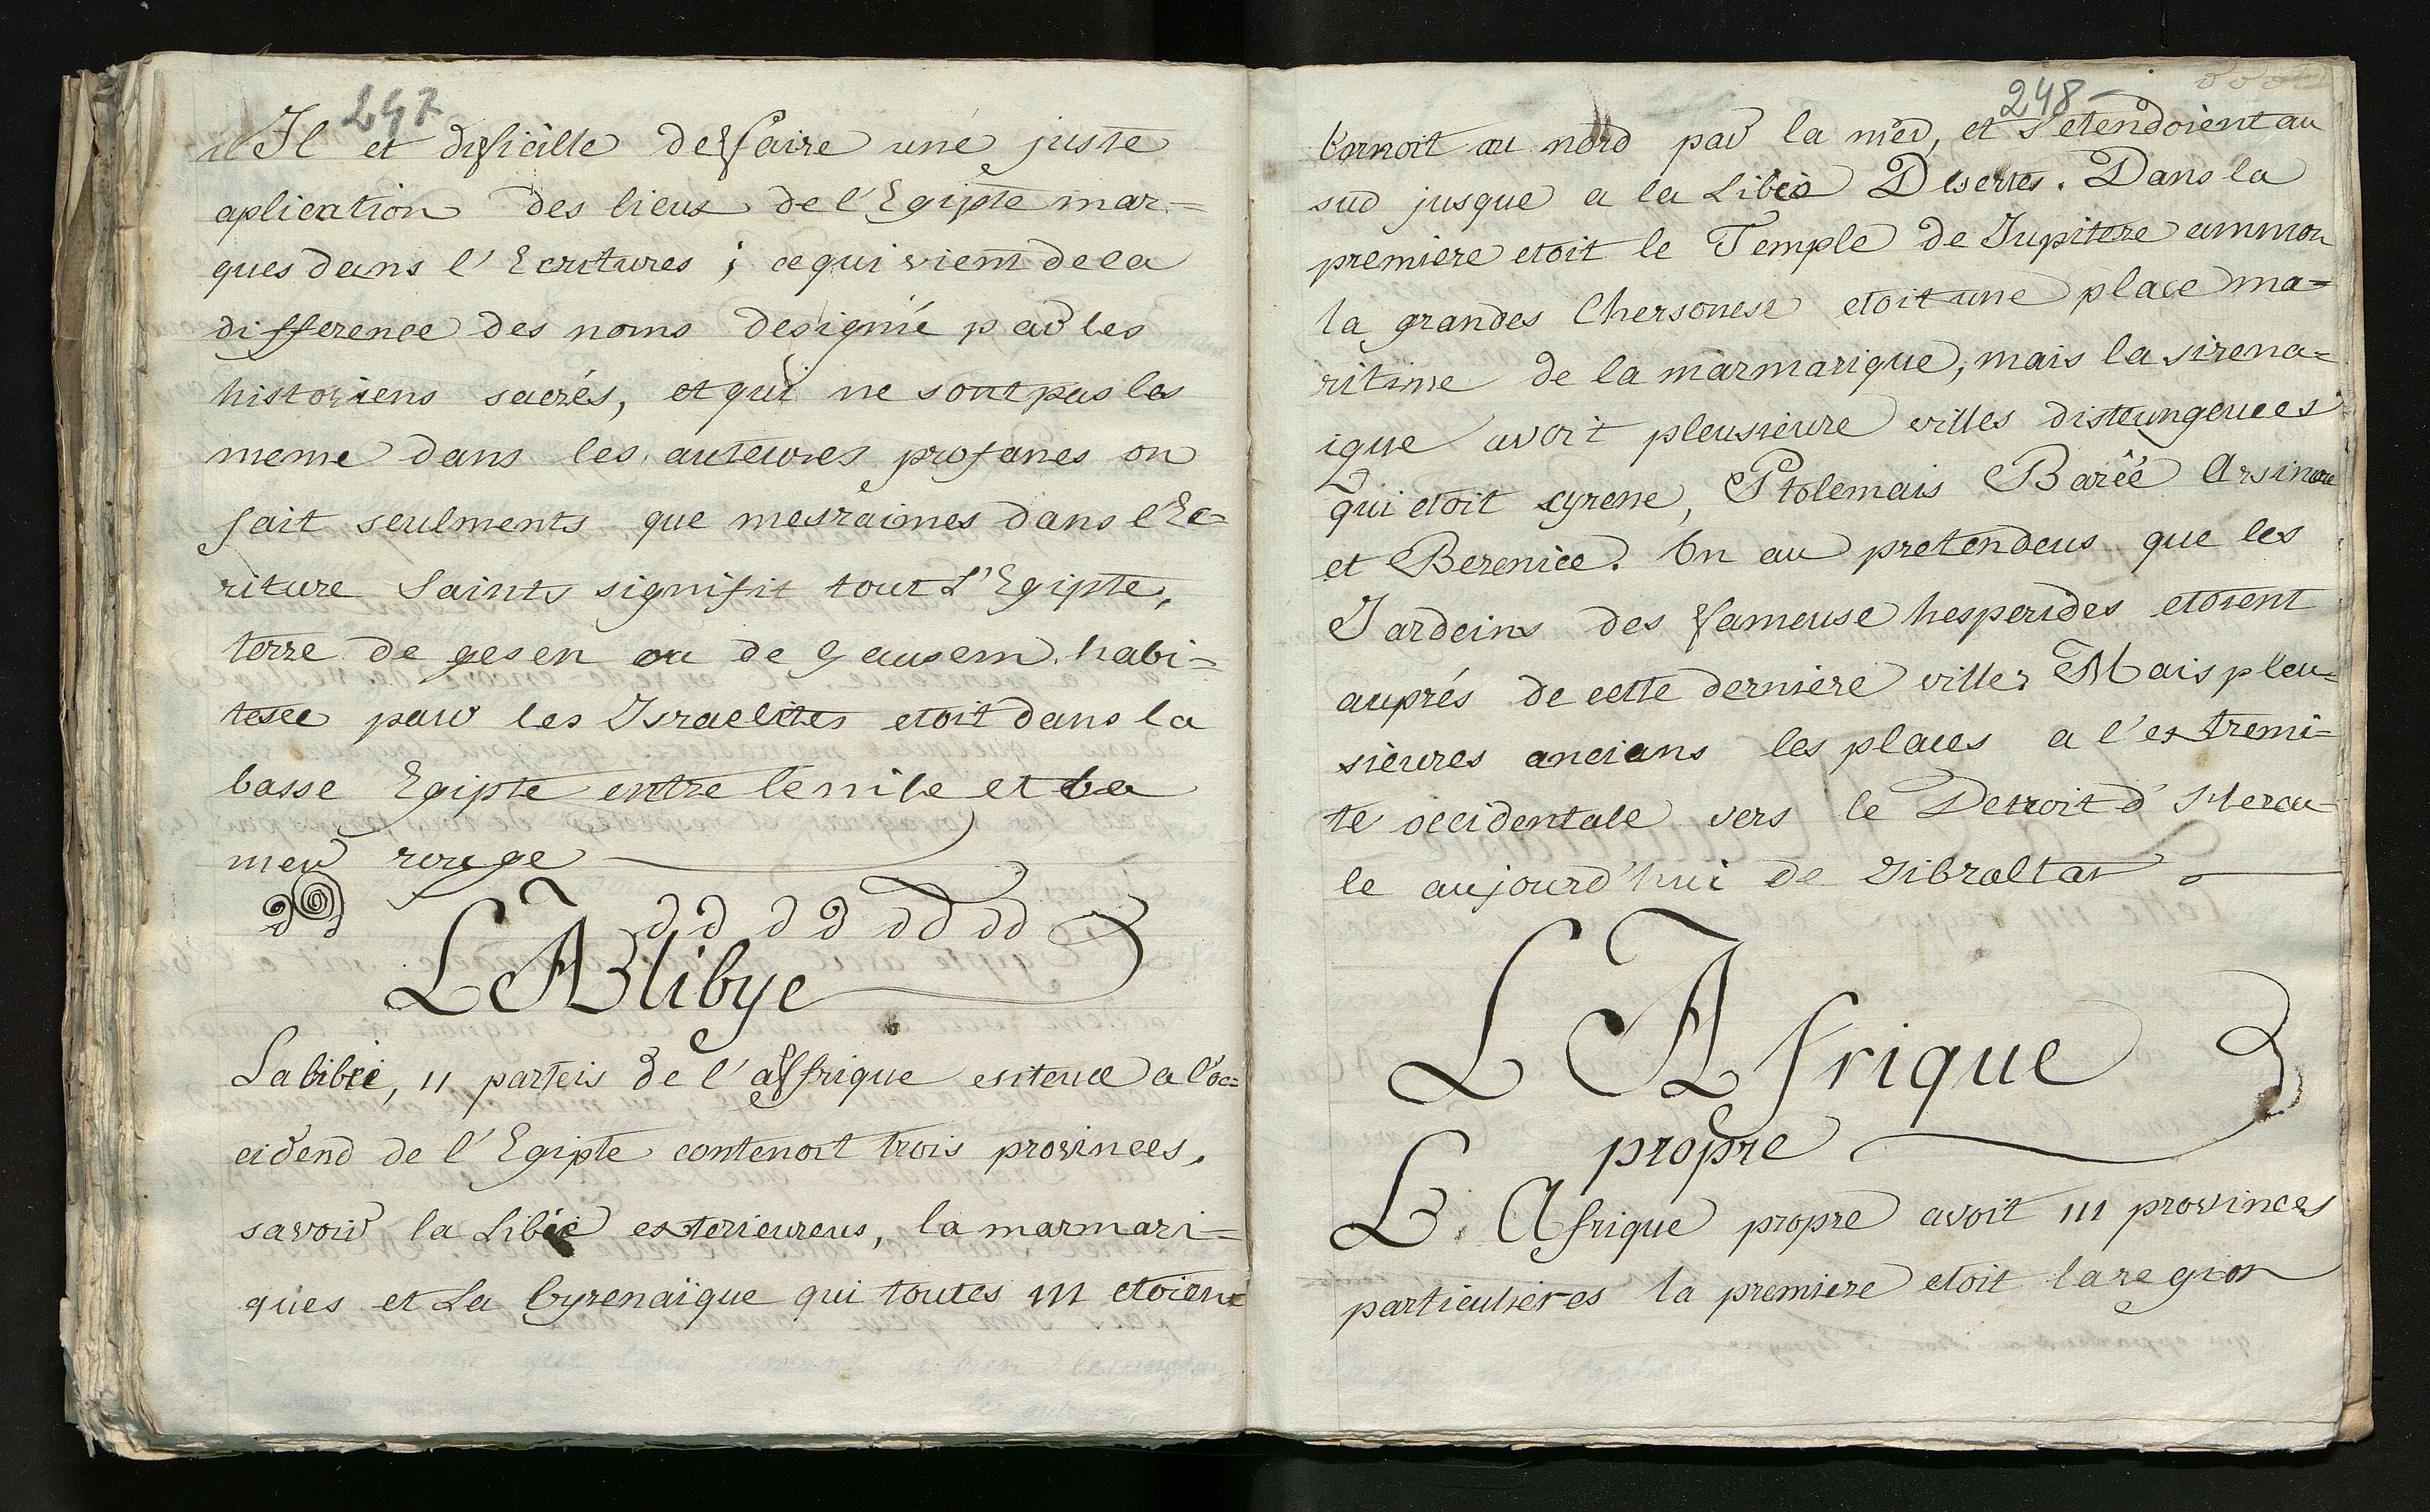 247
Il et dificille de faire une juste
aplication des lieus de l'Egipte mar=
ques dans l'Ecritures ; ce qui vient de la
difference des noms designié par les
historiens sacrés, et qui ne sont pas les
meme dans les auteures profanes on
fait seulments que mesraimes dans l'Ec=
riture Saints signifit tout L'Egipte,
terre de gesen ou de gausem habi=
tesée par les Israelites etoit dans la
basse Egipte entre le nile et la
mer rouge
LA libye
La libié, 11 parteis de l'affrique esiteuee a l'oc=
cidend de l'Egipte contenoit trois provinces,
savoir la Libie exterieureus, la marmari=
ques et La Cyrenaïque qui toutes 111 etoient
248
bornoit au nord par la mer, et s'etendoient au
sud jusque a la Libis Desertes. Dans la
premiere etoit le Temple de Jupitere ammon
la grandes Chersonese etoit une place ma=
ritime de la marmarique, mais la sirena=
ique avoit pleusieure villes disteungeuees
qui etoit cyrene, Ptolemais Barêé Arsinoe
et Berenice. On au pretendeus que les
Jardeins des fameuse hesperides etoient
auprés de cette derniere ville; Mais pleu=
sieures ancians les places a l'extremi=
té occidentale vers le Detroit d'Hercu=
le aujourd'hui de Gibraltar
L Afrique
propre
L'Afrique propre avoit 111 provinces
particulieres la premiere etoit la region